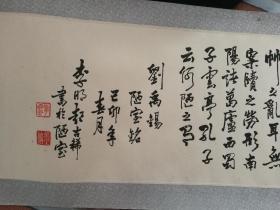 竹之亂耳無
案牘之勞形南
陽諸葛廬西蜀
子雲亭孔子
云何陋之有
劉禹錫
陋室銘
己卯年
春月
李明 古稀
書於陋室